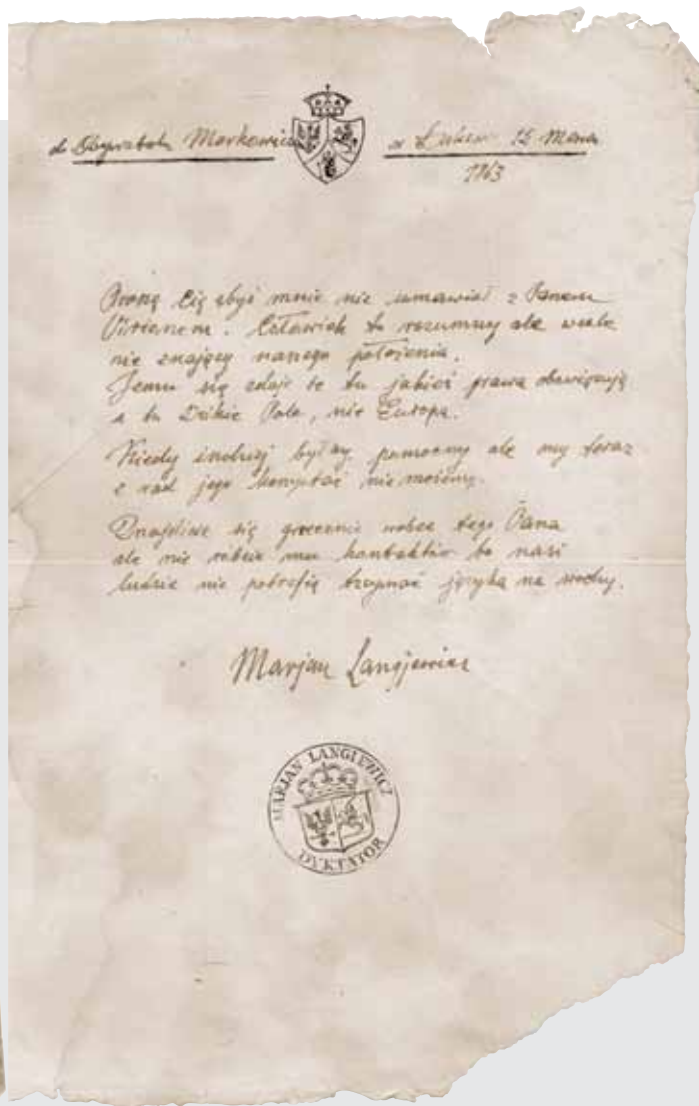 do Obywatela Markowicza
w Łukow 15 Marca
1163
Proszę Cię abyś mnie nie umawiał z Panem
Człowiek to rozumny ale wcale
nie znający naszego położenia.
Jemu się zdaje że tu jakieś prawa obowiązują
a tu Dzikie Pola, nie Europa.
Kiedy indziej byłby pomocny ale my teraz
z rad jego korzystać nie możemy.
Znajdźcie się grzecznie wobec tego Pana
ale nie róbcie mu kontaktów bo nasi
ludzie nie potrafią trzymać języka na wodzy.
Marjan Langiewicz
MARJAN LANGIEWICZ
DYKTATOR